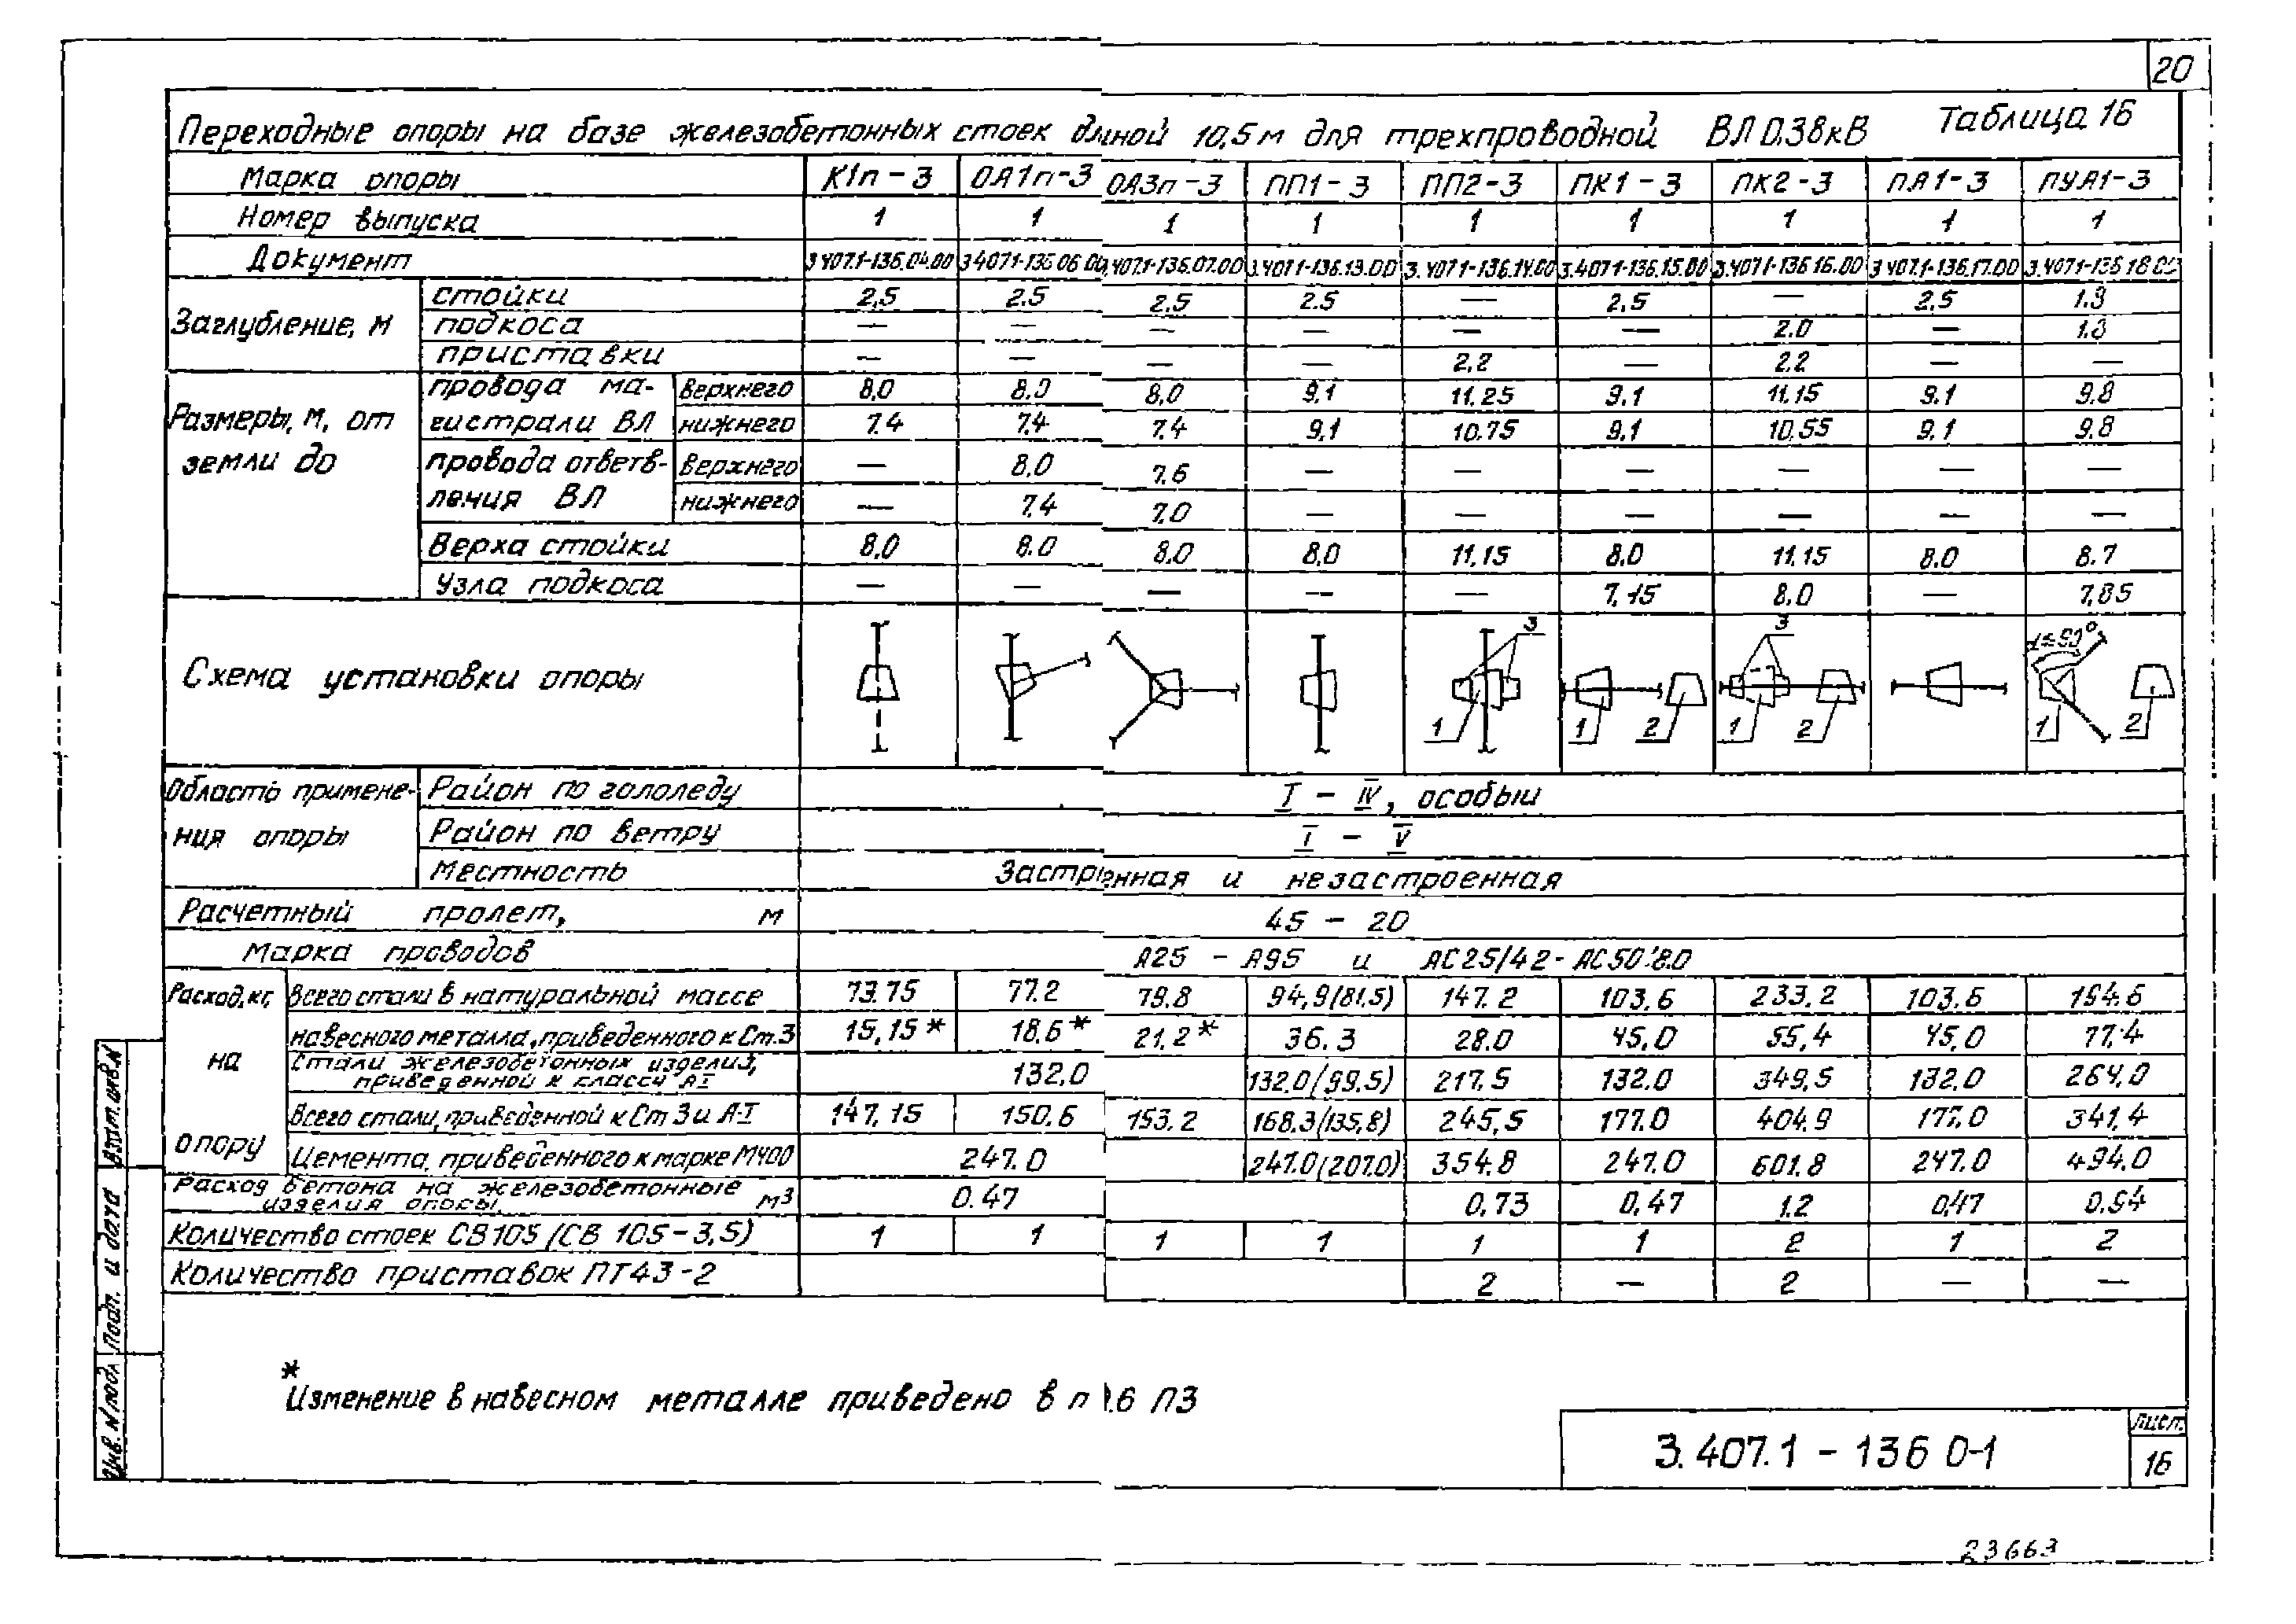 20
Таблица 16
Переходные опоры на базе железобетонных стоек длиной 10,5 м для трехпроводной ВЛ 0.38 кВ
Марка опоры К1п-3 ОА1п-3 ОА3п-3 ПП1-3 ПП2-3 ПК1-3 ПК2-3 ПА1-3 ПУА1-3
Номер выпуска 1 1 1 1 1 1 1 1 1
Документ 3.407.1-136.04.00 3.407.1-136.06.00 3.407.1-136.07.00 3.407.1-136.13.00 3.407.1-136.14.00 3.407.1-136.15.00 3.407.1-136.16.00 3.407.1-136.17.00 3.407.1-136.18.00
Заглубление, м
стойки 2,5 2.5 2.5 2.5 — 2,5 — 2,5 1.3
подкоса — — — — — — 2.0 — 1.3
приставки — — — — 2,2 — 2.2 — —
Размеры, м, от земли до
провода магистрали ВЛ
верхнего 8,0 8.0 8,0 9.1 11.25 9.1 11.15 9.1 9.8
нижнего 7.4 7.4 7.4 9.1 10.75 9.1 10.55 9.1 9.8
провода ответвления ВЛ
верхнего — 8.0 7.6 — — — — — —
нижнего — 7.4 7.0 — — — — — —
Верха стойки 8.0 8.0 8.0 8,0 11.15 8.0 11.15 8.0 8.7
Узла подкоса — — — — — 7.15 8.0 — 7,85
Схема установки опоры
3 3 α≤90°
1 1 2 1 2 1 2
Область применения опоры
Район по гололеду I – IV, особый
Район по ветру I – V
Местность Застроенная и незастроенная
Расчетный пролет, м 45 – 20
Марка проводов А25 – А95 и АС25/4.2 - АС50/8.0
Расход, кг, на опору
Всего стали в натуральной массе 73.75 77.2 79.8 94,9(81.5) 147.2 103.6 233.2 103.6 194.6
навесного металла, приведенного к Ст.3 15,15* 18.6* 21.2* 36.3 28.0 45.0 55,4 45,0 77.4
Стали железобетонных изделий, приведенной к классу АI 132.0 132.0(99.5) 217.5 132.0 349,5 132.0 264.0
Всего стали, приведенной к Ст 3 и А-I 147,15 150.6 153.2 168.3(135,8) 245,5 177.0 404.9 177.0 341.4
Цемента, приведенного к марке М400 247.0 247.0(207.0) 354.8 247.0 601.8 247.0 494.0
Расход бетона на железобетонные изделия опоры, м3 0.47 0.73 0,47 1.2 0,47 0.94
Количество стоек СВ105 (СВ 105-3,5) 1 1 1 1 1 1 2 1 2
Количество приставок ПТ43-2 2 — 2 — —
* Изменение в навесном металле приведено в п 1.6 ПЗ
3.407.1 - 136 0-1
Лист
16
23663
Инв. N подл Подп. и дата Взам. инв. N